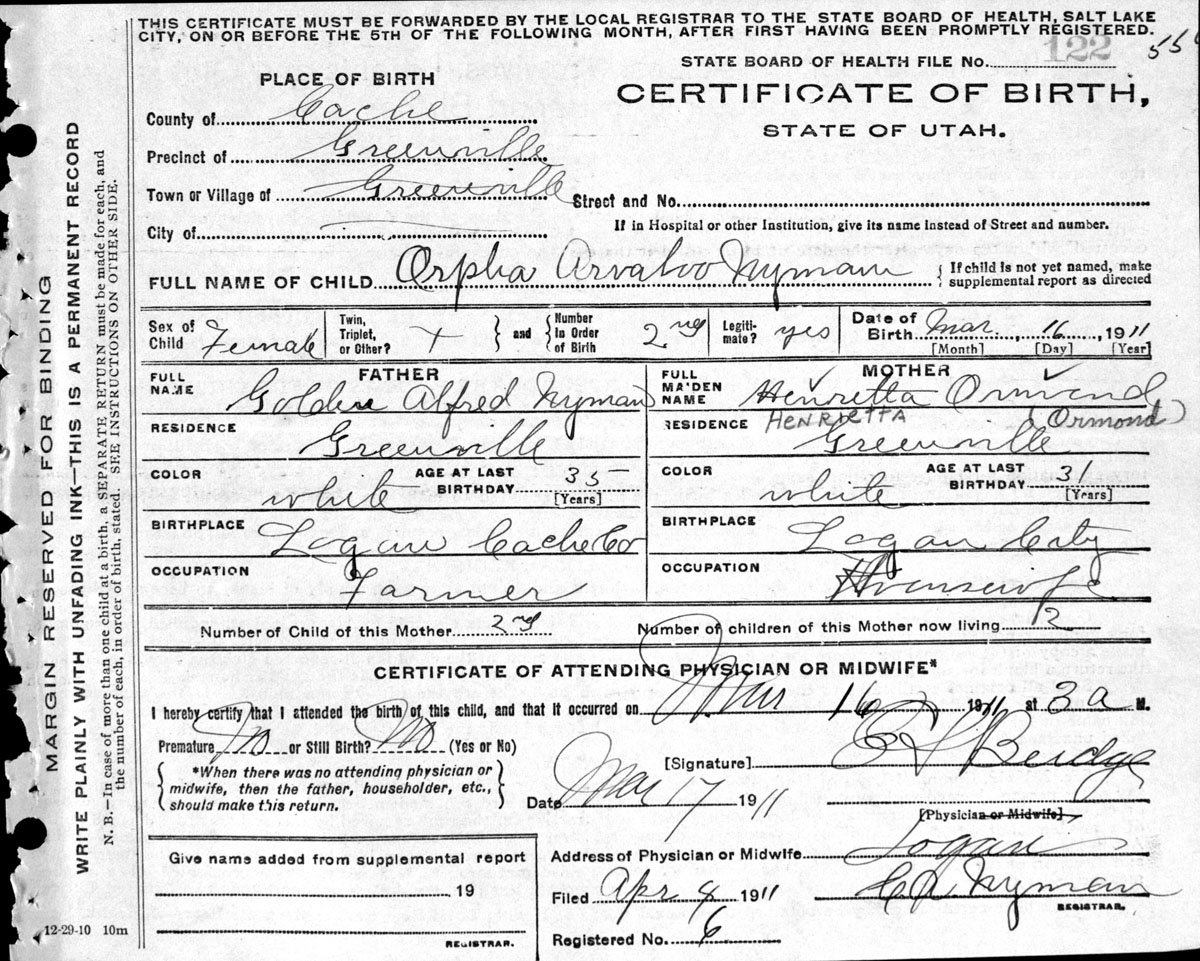 THIS CERTIFICATE MUST BE FORWARDED BY THE LOCAL REGISTRAR TO THE STATE BOARD OF HEALTH, SALT LAKE
CITY, ON OR BEFORE THE 5TH OF THE FOLLOWING MONTH, AFTER FIRST HAVING BEEN PROMPTLY REGISTERED.
STATE BOARD OF HEALTH FILE No. 122
PLACE OF BIRTH
CERTIFICATE OF BIRTH,
STATE OF UTAH.
County of Cache
Precinct of Greenville
Town or Village of Greenville
Street and No.
City of
If in Hospital or other Institution, give its name instead of Street and number.
FULL NAME OF CHILD Orpha Arvaloo Nyman
{ If child is not yet named, make
supplemental report as directed
Sex of Child Female
Twin, Triplet, or Other? +
} and { Number In Order of Birth 2nd
Legiti-mate? yes
Date of Birth Mar. 16, 1911
[Month] [Day] [Year]
FATHER
FULL NAME Golden Alfred Nyman
RESIDENCE Greenville
COLOR white
AGE AT LAST BIRTHDAY 35
[Years]
BIRTHPLACE Logan Cache Co
OCCUPATION Farmer
MOTHER
FULL MAIDEN NAME Henrietta Ormond
HENRIETTA (Ormond)
RESIDENCE Greenville
COLOR white
AGE AT LAST BIRTHDAY 31
[Years]
BIRTHPLACE Logan City
OCCUPATION Housewife
Number of Child of this Mother 2nd
Number of children of this Mother now living 2
CERTIFICATE OF ATTENDING PHYSICIAN OR MIDWIFE*
I hereby certify that I attended the birth of this child, and that it occurred on Mar 16 1911 at 3 a M.
Premature No or Still Birth? No (Yes or No)
{ *When there was no attending physician or
midwife, then the father, householder, etc.,
should make this return. }
[Signature] Budge
Date Mar 17 1911
[Physician or Midwife]
Give name added from supplemental report
19
REGISTRAR.
Address of Physician or Midwife Logan
Filed Apr 4 1911
C A Nyman
REGISTRAR.
Registered No. 6
12-29-10 10m
MARGIN RESERVED FOR BINDING
WRITE PLAINLY WITH UNFADING INK—THIS IS A PERMANENT RECORD
N. B.—In case of more than one child at a birth, a SEPARATE RETURN must be made for each, and
the number of each, in order of birth, stated. SEE INSTRUCTIONS ON OTHER SIDE.